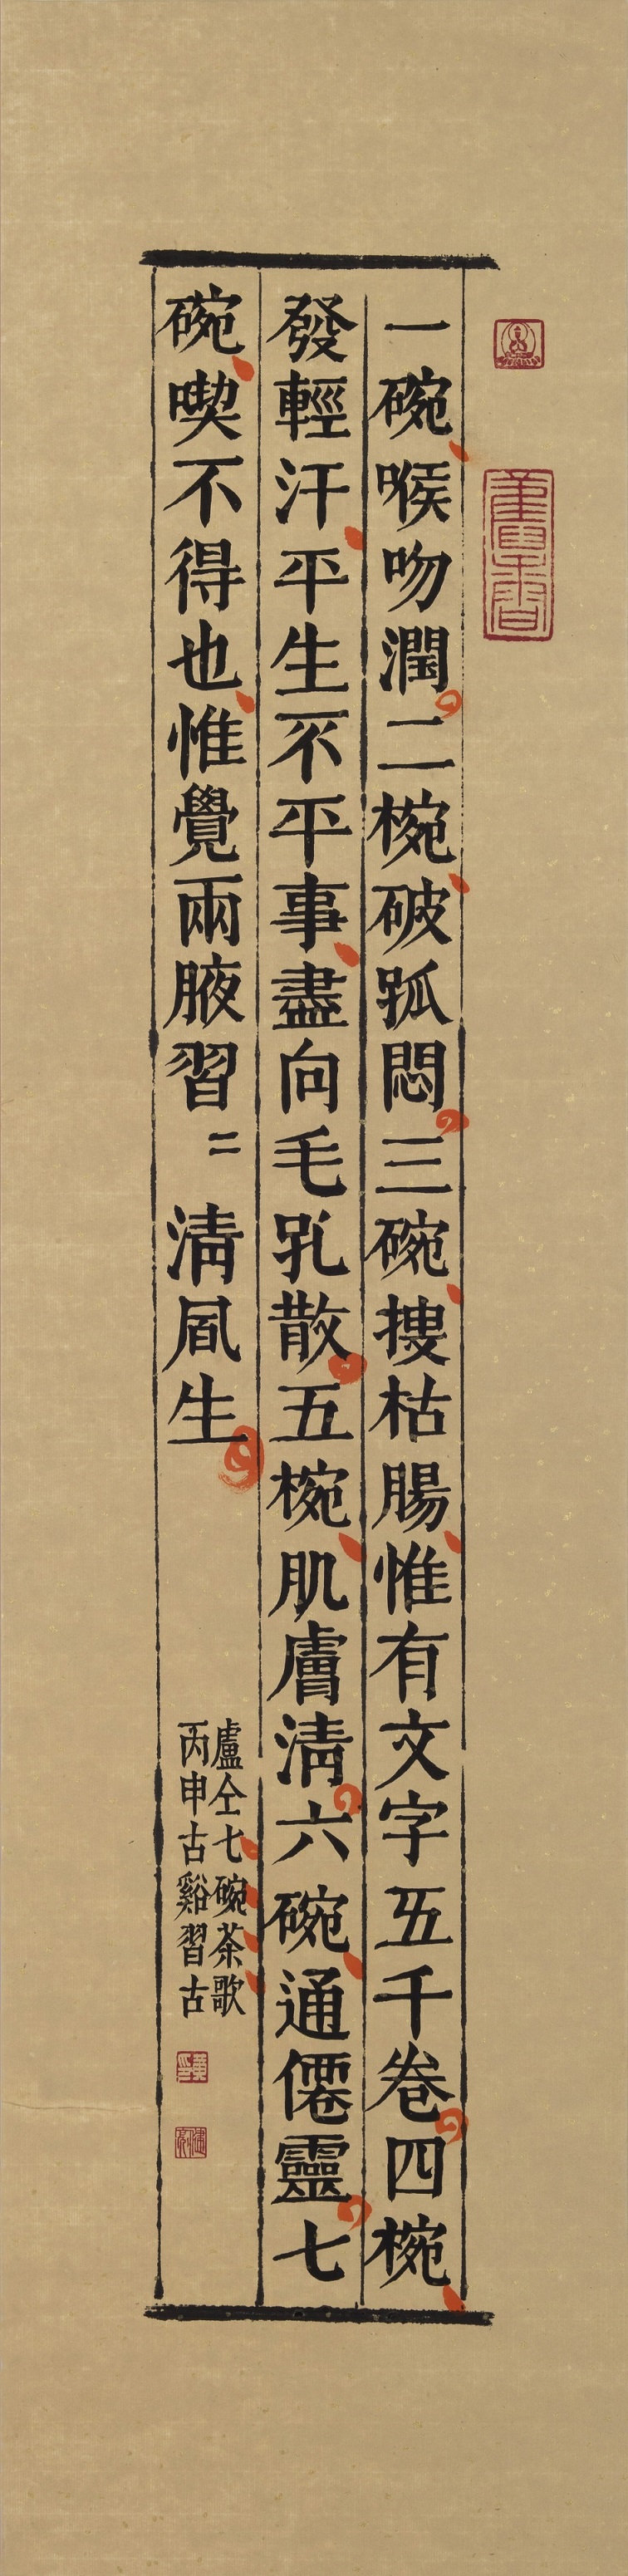 一碗喉吻潤二椀破孤悶三碗搜枯腸惟有文字五千卷四椀
發輕汗平生不平事盡向毛孔散五椀肌膚清六碗通僊靈七
碗喫不得也惟覺兩腋習〻清風生
盧仝七碗茶歌
丙申古谿習古